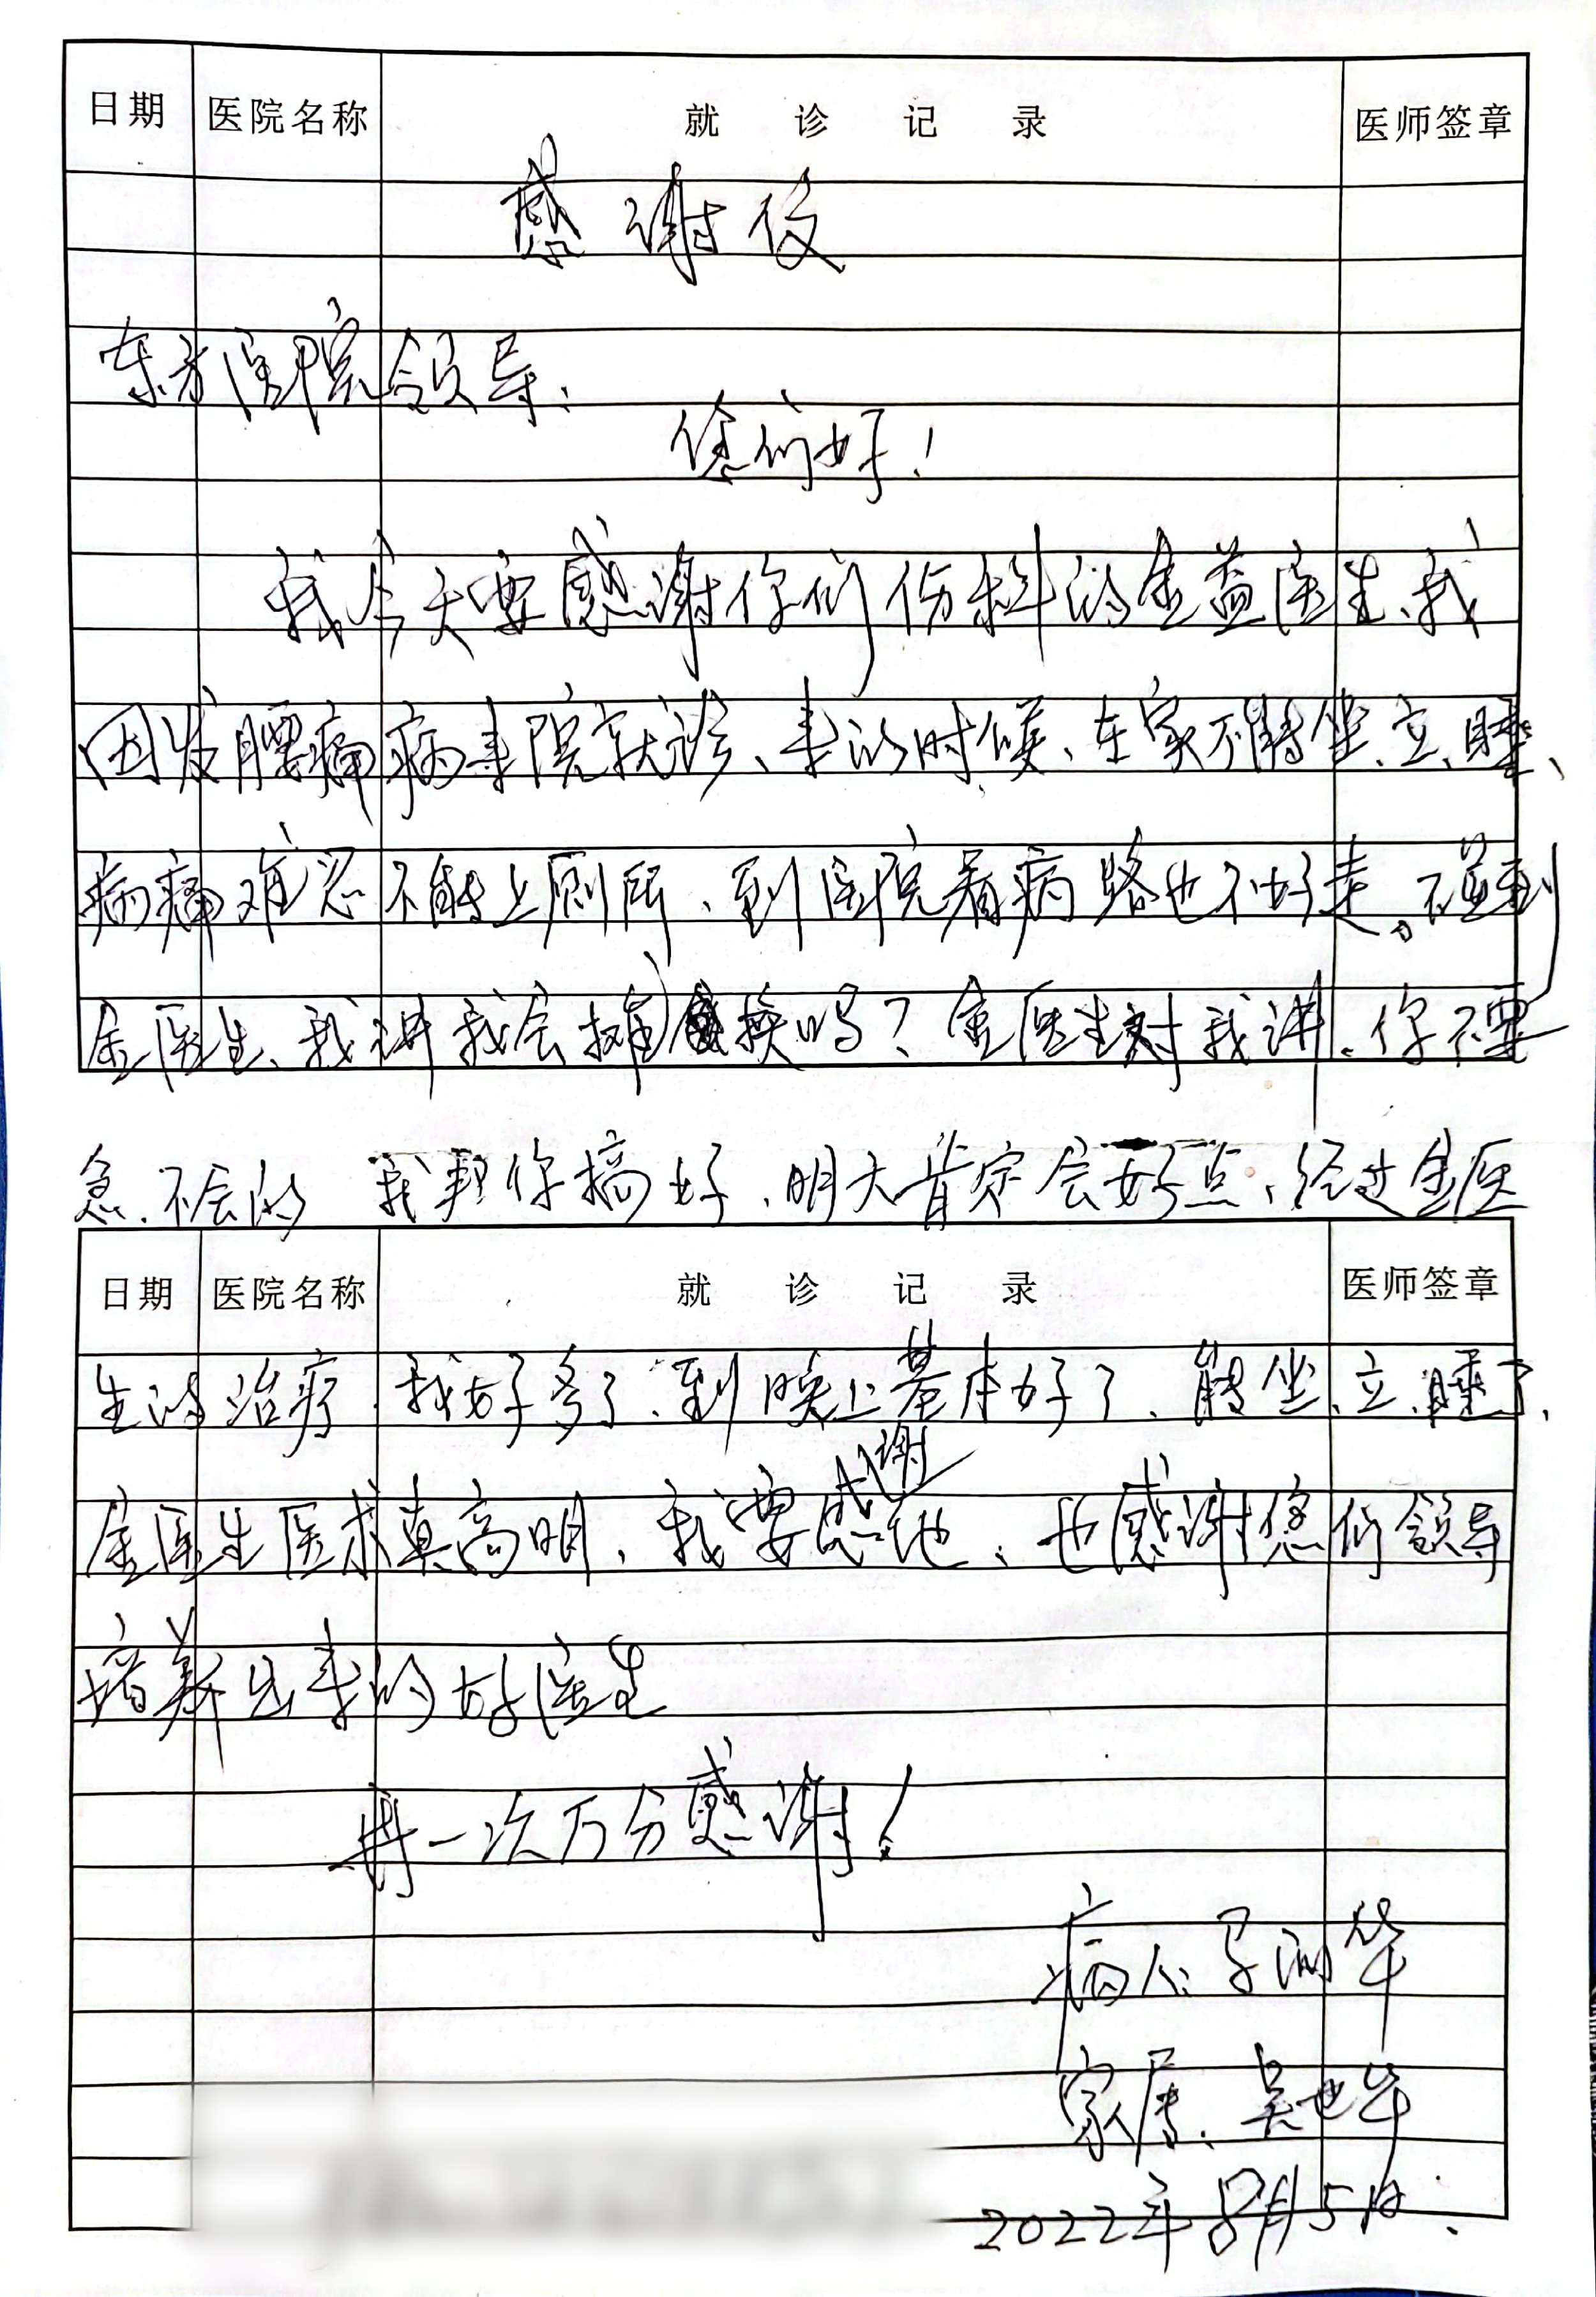 日期 医院名称 就诊记录 医师签章
感谢
东方医院领导、
您们好！
我今天要感谢你们伤科的金益医生、我
因发腰痛病来院就诊、来的时候、在家不能坐、立、睡、
病痛难忍不能上厕所、到医院看病路也不好走。不碰到
金医生、我讲我会瘫痪吗？金医生对我讲、你不要
急、不会的 我帮你搞好、明天肯定会好点、经过金医
日期 医院名称 就诊记录 医师签章
生的治疗、我好多了、到晚上基本好了、能坐、立、睡了、
金医生医术真高明、我要感谢他、也感谢您们领导
培养出来的好医生
再一次万分感谢！
病人：华
家属、吴世华
2022年8月5日